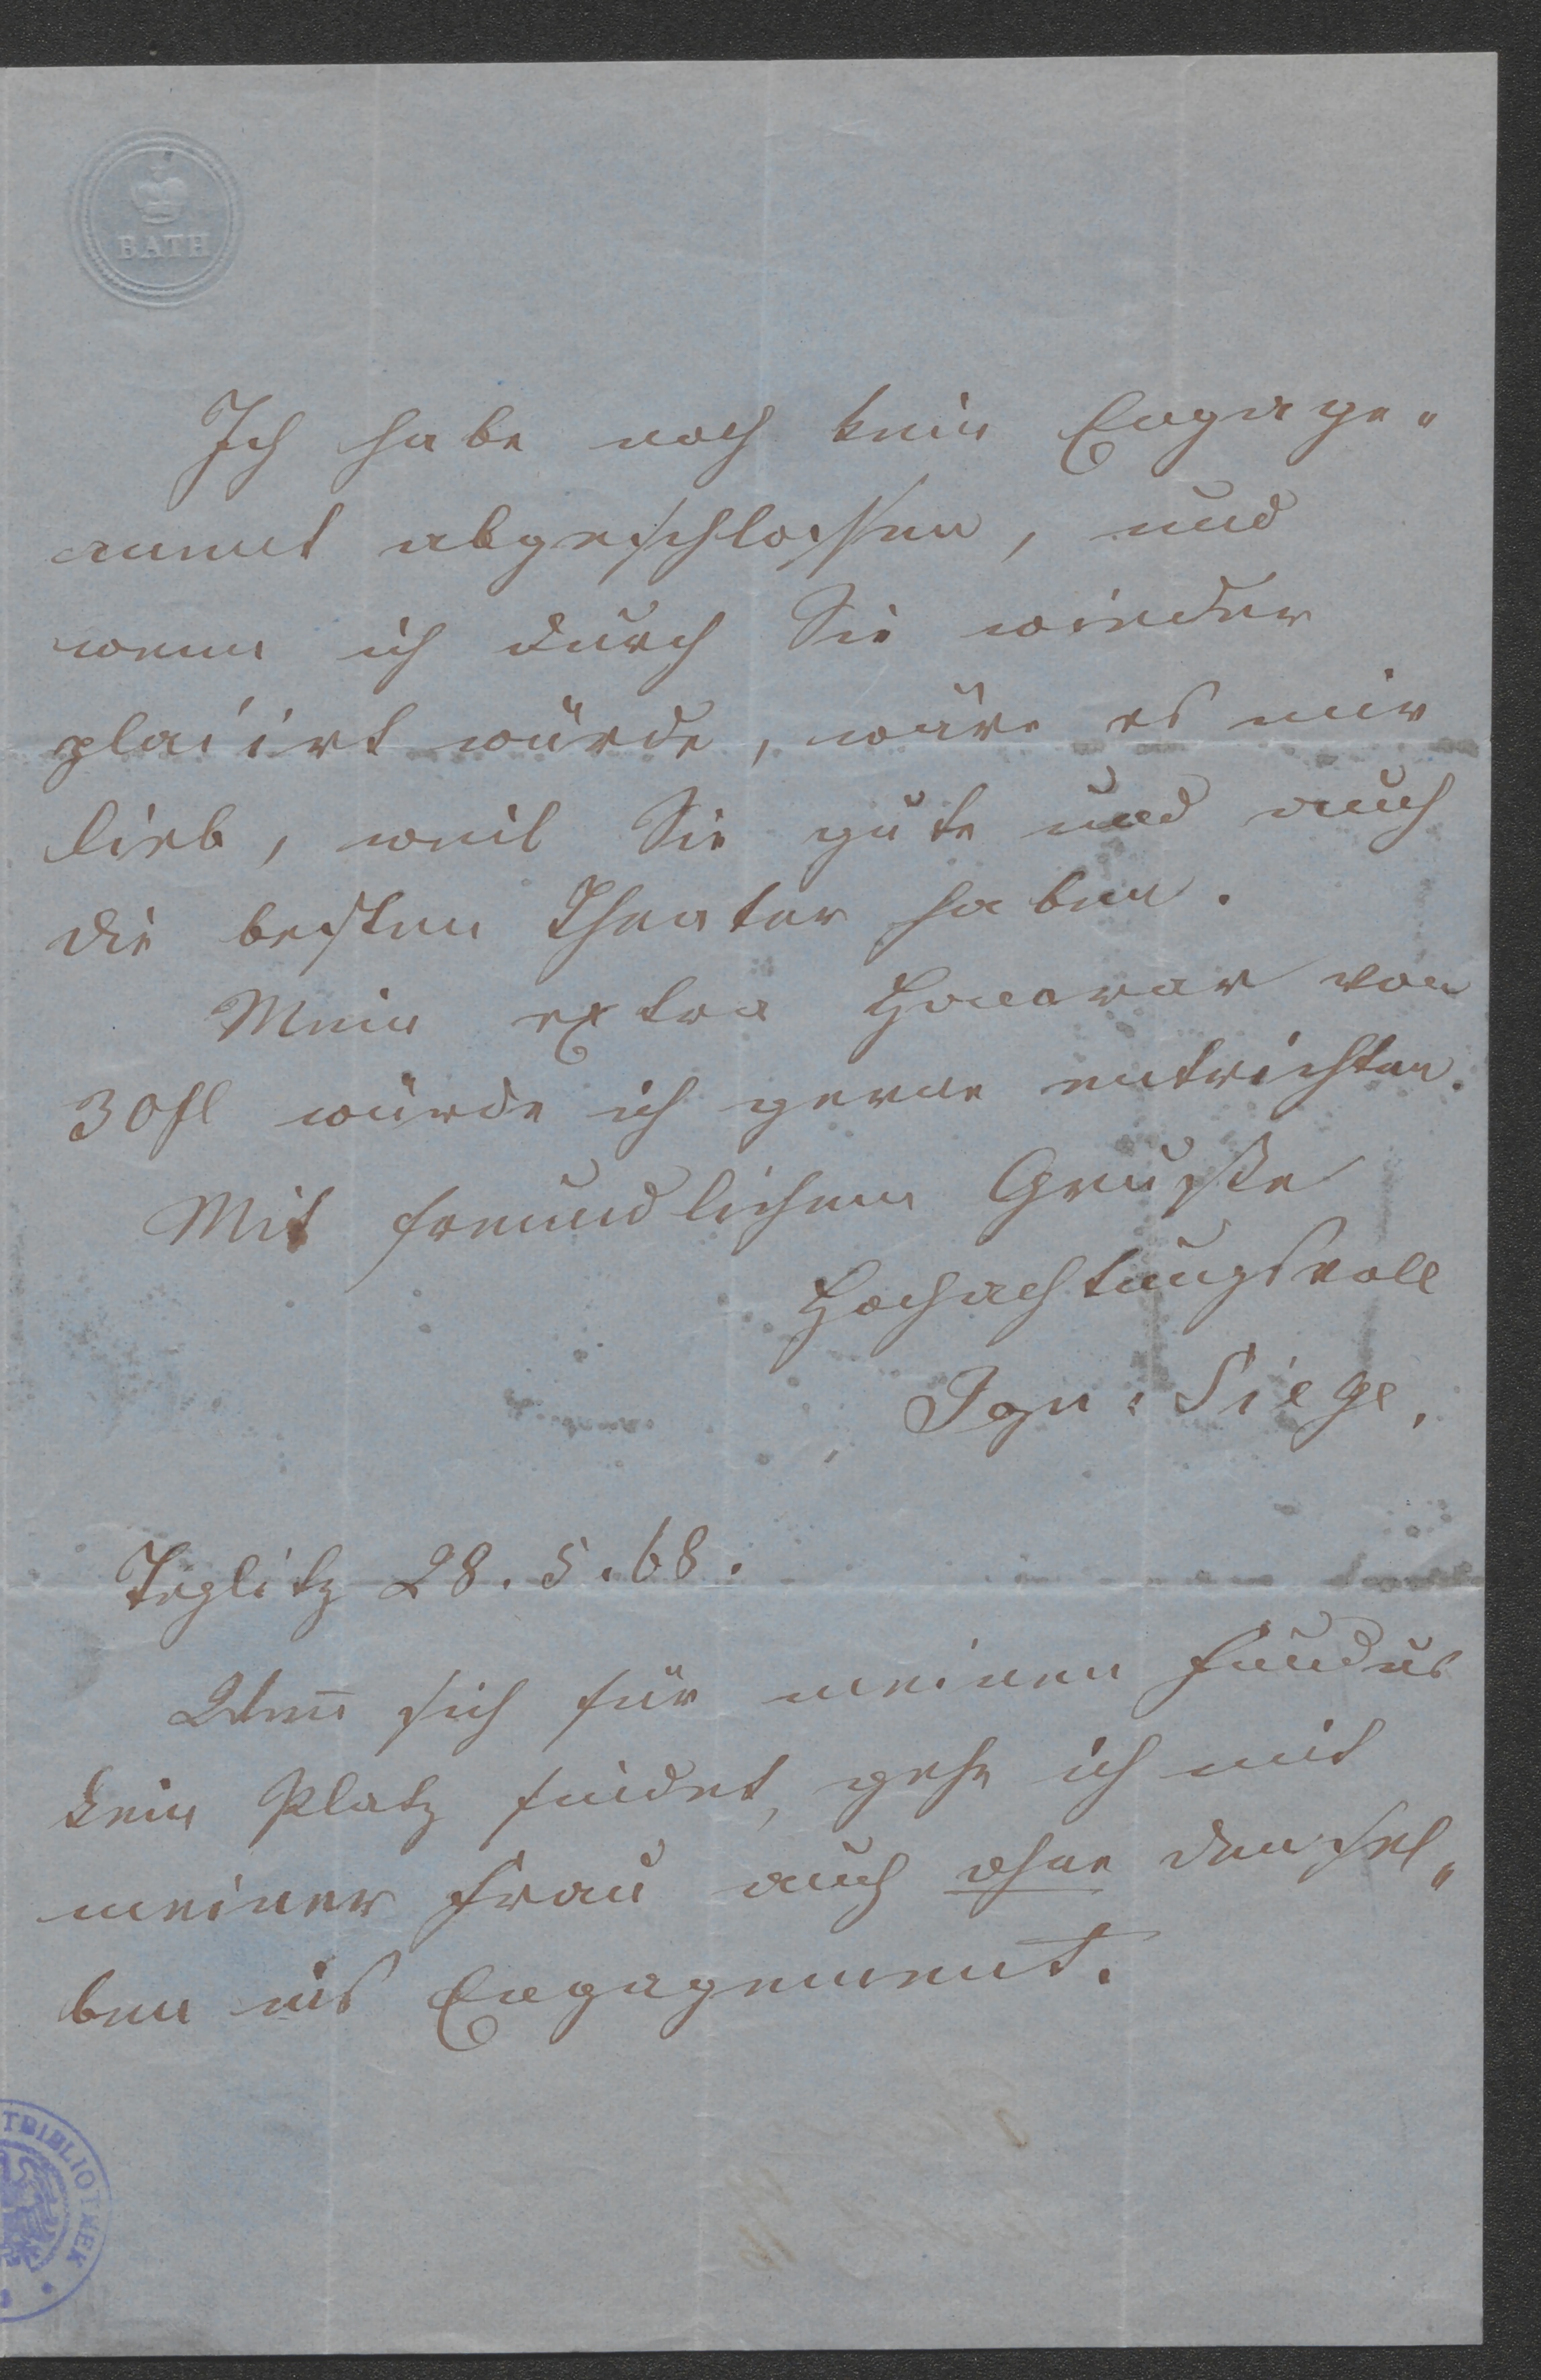 BATH
Ich habe noch kein Engage„
ment abgeschlossen, und
wenn ich durch Sie wieder
plaiirt würde, wäre es mir
lieb, weil Sie gute und auch
die besten Theater haben.
Mein extra Honorar von
30 fl würde ich gerne entrichten.
Mit freundlichem Gruße
Hochachtungsvoll
Ign: Siege.
Teplitz 28. 5. 68.
Wen̅ sich für meinen Fundus
kein Platz findet, gehe ich mit
meiner Frau auch ohne densel„
ben ins Engagement.
TBIBLIOTHEK